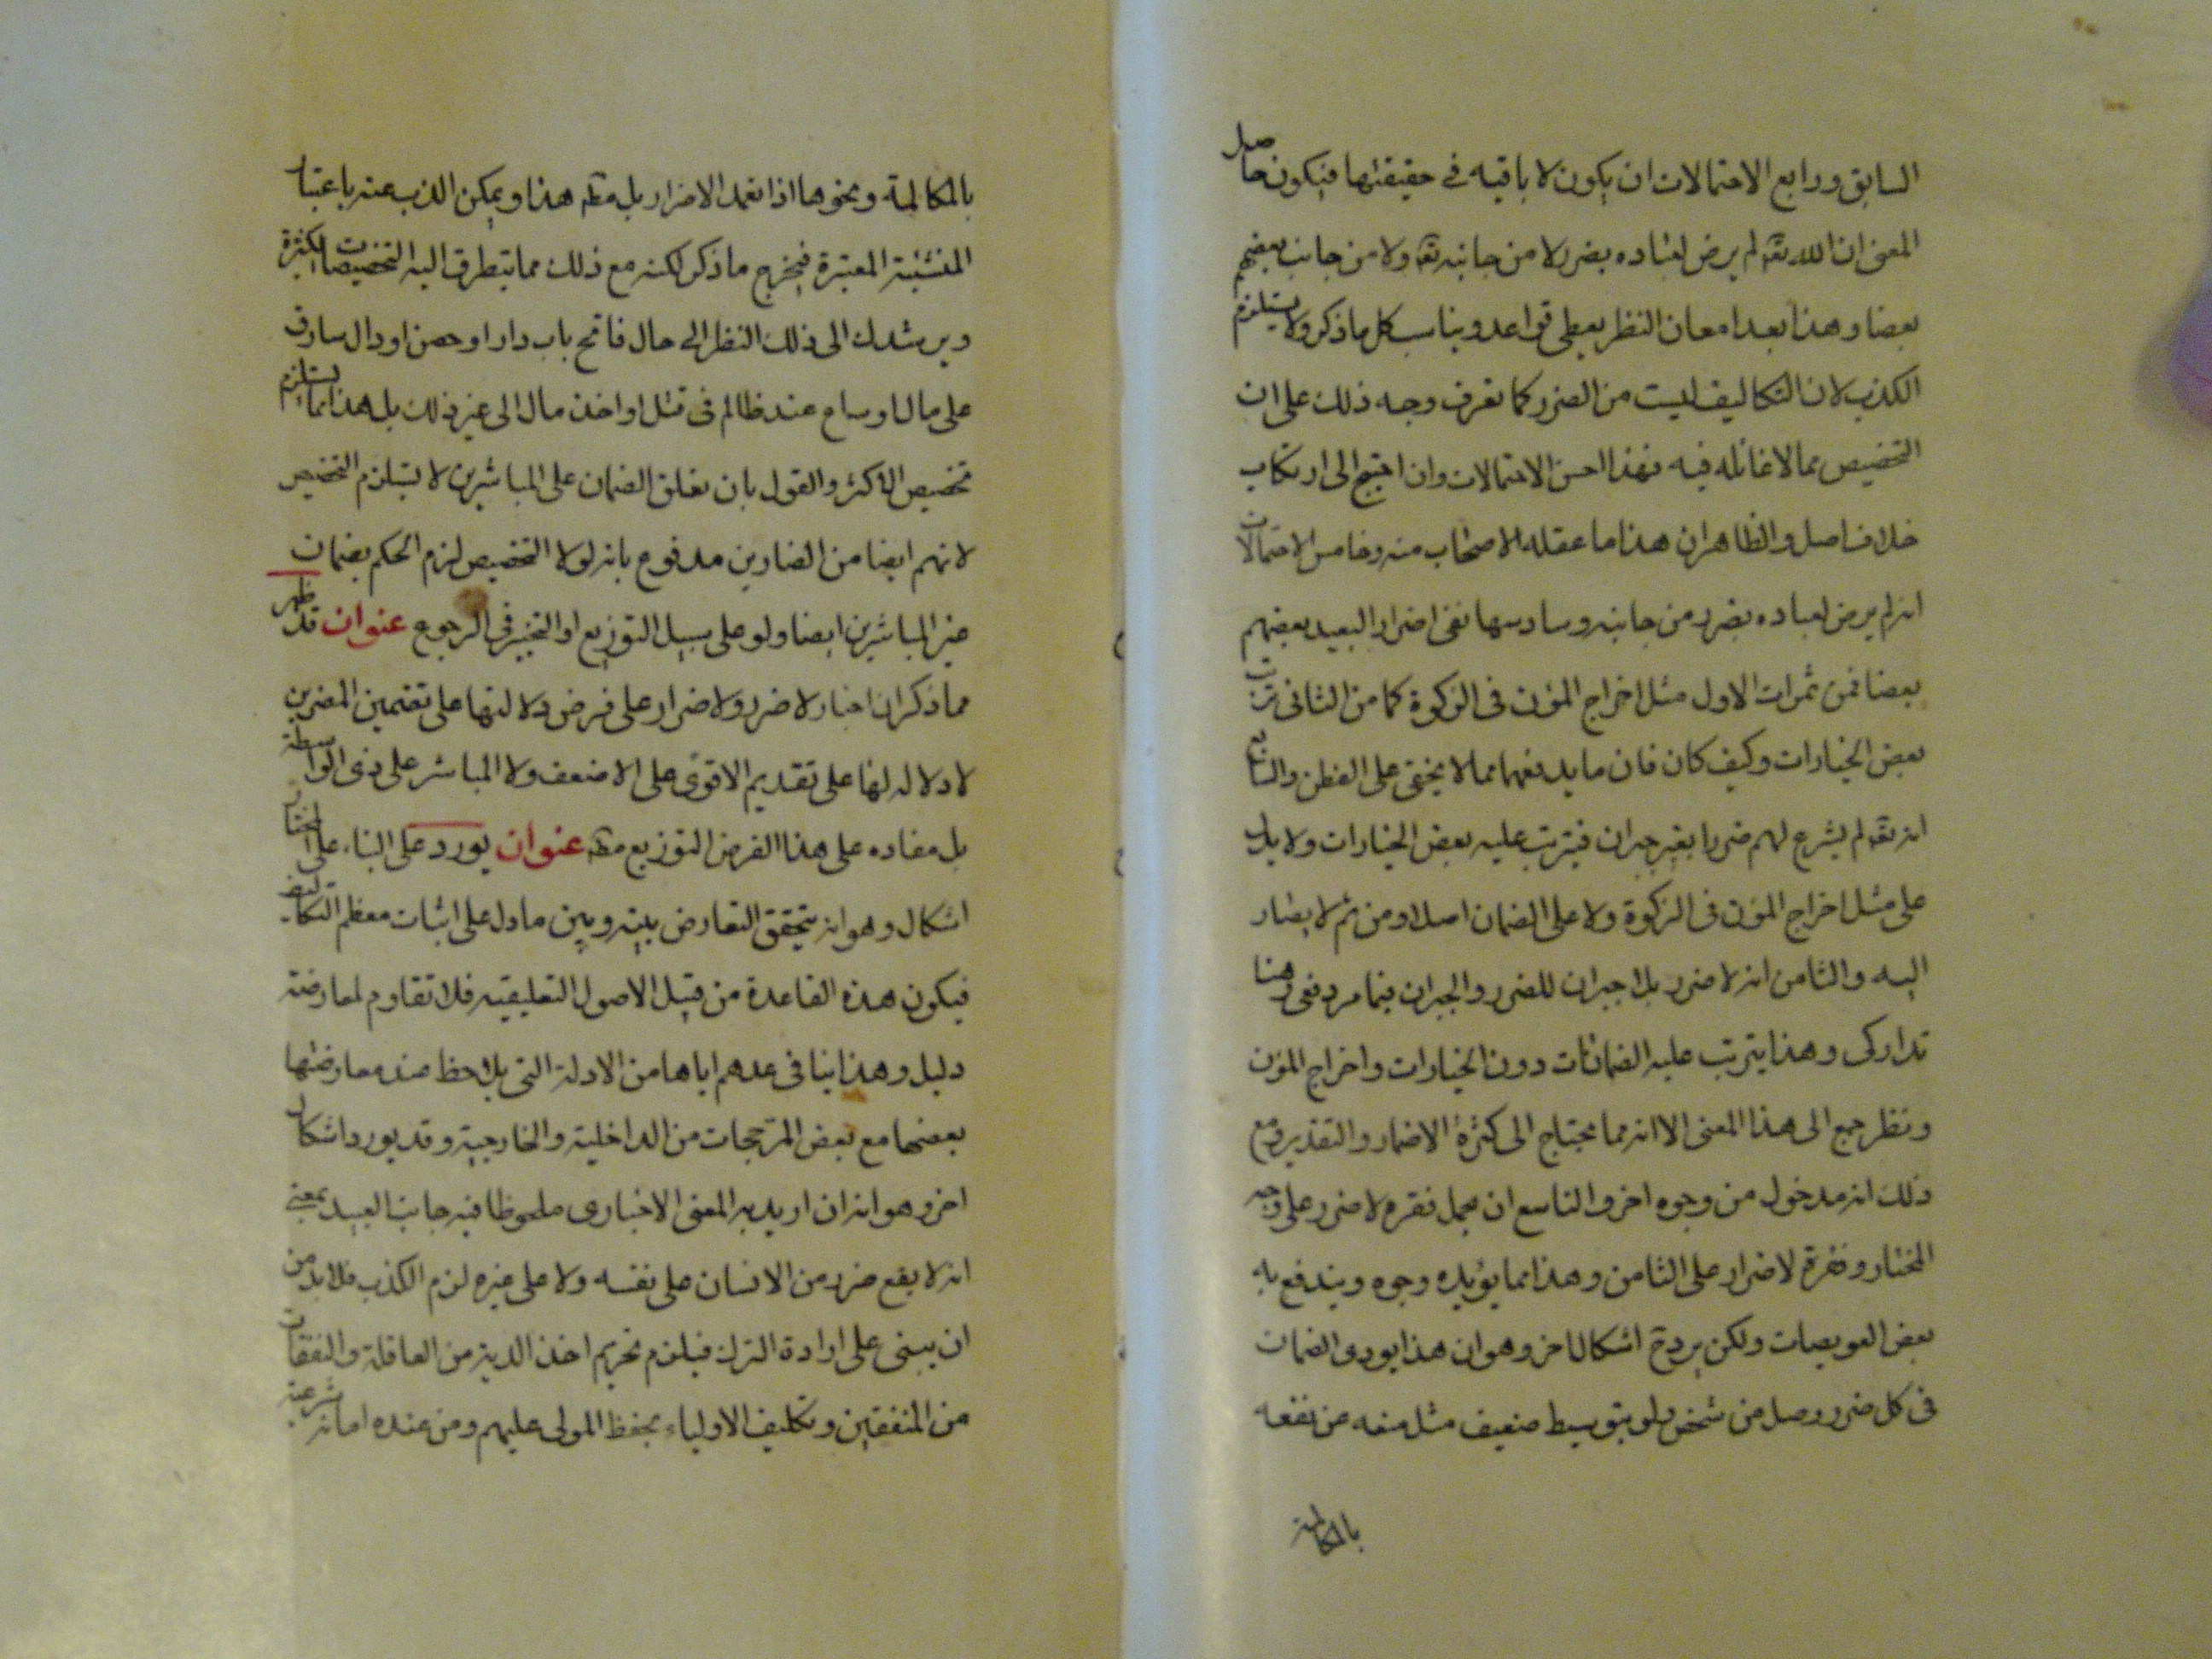 السابق ورابع الاحتمالات ان يكون لا باقيه في حقيقتها فيكون حاصل
المعنى ان الله تعہ لم يرض لعباده بضرر لا من جانبه تعہ ولا من جانب بعضهم
بعضا وهذا بعد امعان النظر يعطى قواعد ويناسب كل ما ذكر ولا يستلزم
الكذب لان التكاليف ليست من الضرر كما تعرف وجه ذلك على ان
التخصيص مما لا غائله فيه فهذا احسن الاحتمالات وان احتيج الى ارتكاب
خلاف اصل والظاهر ان هذا ما عقله الاصحاب منه وخامس الاحتمالات
انه لم يرض لعباده بضرر من جانبه وسادسها نفى اضرار العبيد بعضهم
بعضا فمن ثمرات الاول مثل اخراج المؤن فى الزكوة كما من الثانى ترتب
بعض الخيارات وكيف كان فان ما يدفعهما مما لا يخفى على الفطن والسابع
انه تعہ لم يشرع لهم ضررا بغير جبران فيترتب عليه بعض الخيارات ولا يدل
على مثل اخراج المؤن فى الزكوة ولا على الضمان اصلا ومن ثم لا يصار
اليه والثامن انه لا ضرر بلا جبران للضرر والجبران فيما مر دفعى وهنا
تداركى وهذا يترتب عليه الضمانات دون الخيارات واخراج المؤن
ونظر جمع الى هذا المعنى الا انه مما يحتاج الى كثرة الاضمار والتقدير ومع
ذلك انه مدخول من وجوه اخر والتاسع ان يحمل فقره لا ضرر على وجه
المختار وفقرة لا ضرار على الثامن وهذا مما يؤيده وجوه ويندفع به
بعض العويصات ولكن يرد ح اشكال اخر وهو ان هذا يورى الضمان
فى كل ضرر وصل من شخص ولو بتوسيط ضعيف مثل منعه عن نفعه
بالمكالمة
بالمكالمة ونحوها اذا تعمد الاضرار بل مطہ هذا ويمكن الذب عنه باعتبار
المنشئية المعتبرة فيخرج ما ذكر لكنه مع ذلك مما يتطرق اليه التخصيصات الكثيرة
ويرشدك الى ذلك النظر الى حال فاتح باب دار او حصن او دال سارق
على مال او ساع عند ظالم فى قتل او اخذ مال الى غير ذلك بل هذا مما يستلزم
تخصيص الاكثر والقول بان تعلق الضمان على المباشرين لا يستلزم التخصيص
لانهم ايضا من الضارين مدفوع بانه لولا التخصيص لزم الحكم بضمان
غير المباشرين ايضا ولو على سبيل التوزيع او التخيير فى الرجوع عنوان قد ظهر
مما ذكر ان اخبار لا ضرر ولا ضرار على فرض دلالتها على تضمين المضرين
لا دلاله لها على تقديم الاقوى على الاضعف ولا المباشر على ذى الواسطة
بل مفاده على هذا الفرض التوزيع مطہ عنوان يورد على البناء على المختار
اشكال وهو انه يتحقق التعارض بينه وبين ما دل على اثبات معظم التكاليف
فيكون هذه القاعدة من قبيل الاصول التعليقيه فلا تقاوم لمعارضة
دليل وهذا ينافى عدهم اياها من الادلة التى يلاحظ عند معارضتها
بعضها مع بعض المرجحات من الداخلية والخارجية وقد يورد اشكال
اخر وهو انه ان اريد به المعنى الاخبارى ملحوظا فيه جانب العبيد بمعنى
انه لا يقع ضرر من الانسان على نفسه ولا على غيره لزم الكذب فلا بد من
ان يبنى على ارادة الترك فيلزم تحريم اخذ الدية من العاقلة والنفقات
من المنفقين وتكليف الاولياء بحفظ المولى عليهم ومن عنده امانة شرعية